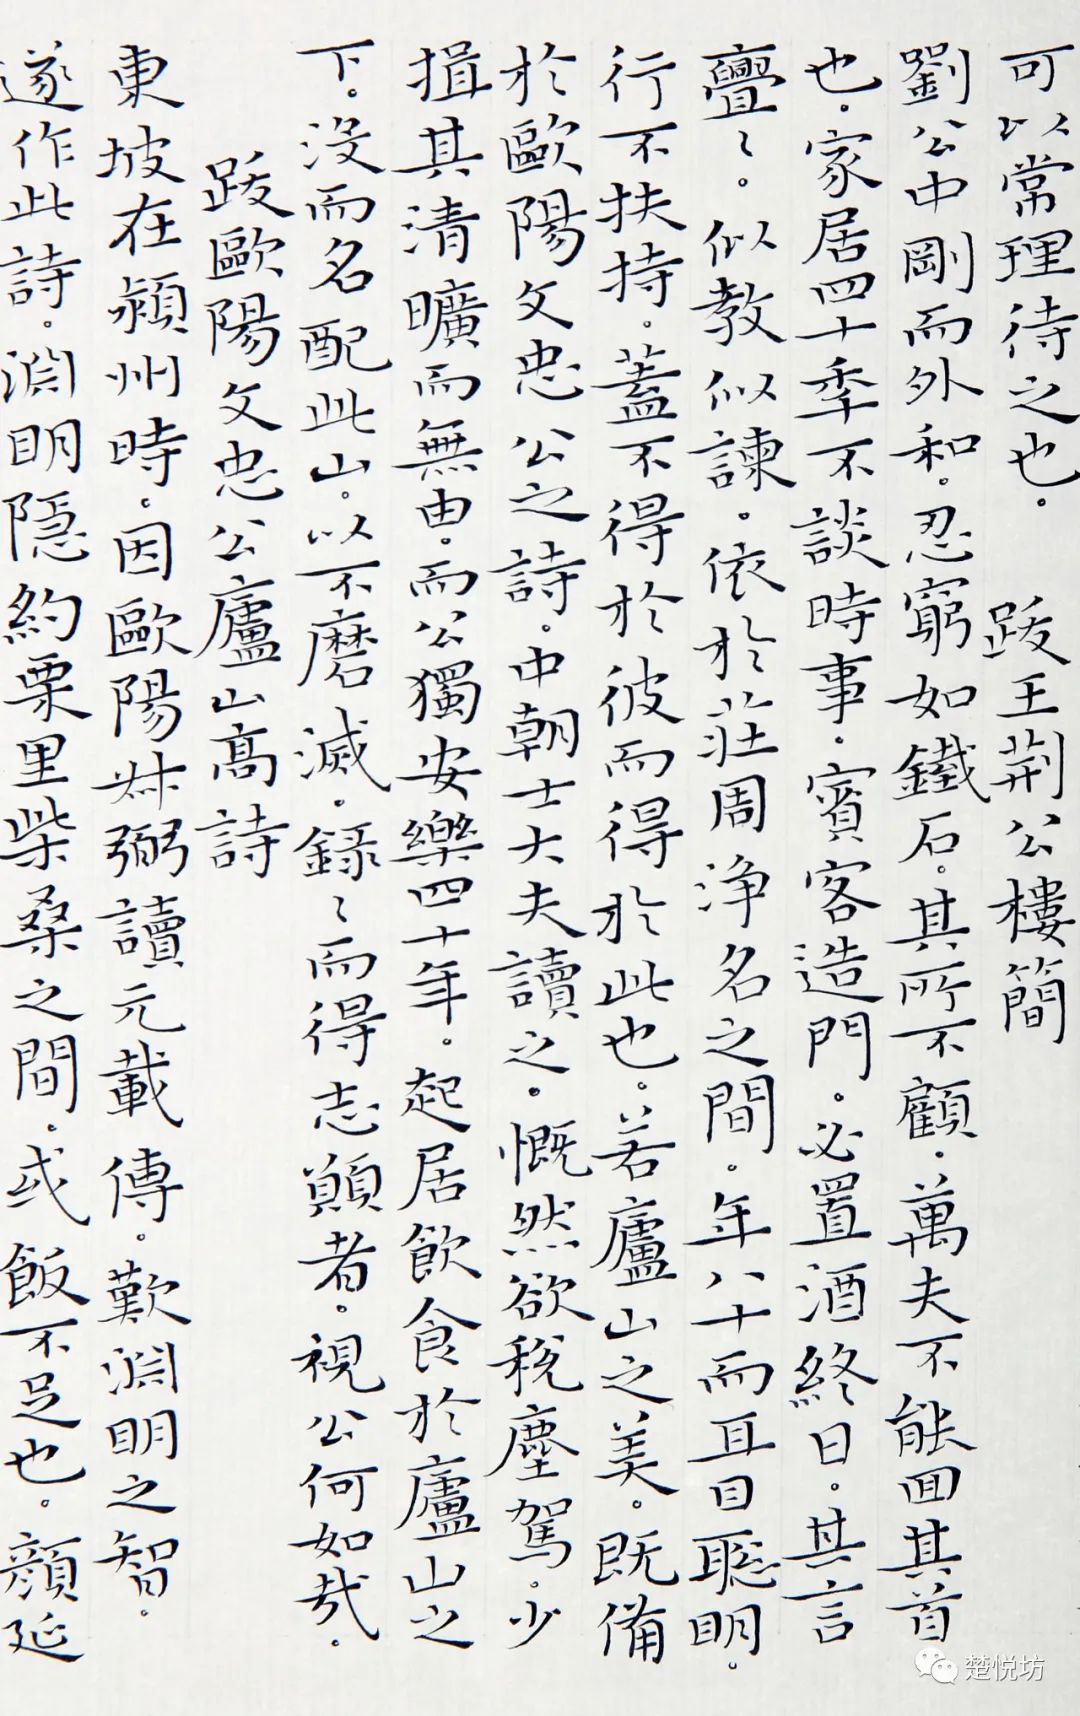 可以常理待之也。　跋王荊公樓簡
劉公中剛而外和。忍窮如鐵石。其所不顧。萬夫不能回其首
也。家居四十季不談時事。賓客造門。必置酒終日。其言
亹〻。似教似諫。依於莊周淨名之間。年八十而耳目聰明。
行不扶持。蓋不得於彼而得於此也。若廬山之美。既備
於歐陽文忠公之詩。中朝士大夫讀之。慨然欲稅塵駕。少
揖其清曠而無由。而公獨安樂四十年。起居飲食於廬山之
下。沒而名配此山。以不磨滅。錄〻而得志願者。視公何如哉。
跋歐陽文忠公廬山高詩
東坡在潁州時。因歐陽叔弼讀元載傳。歎淵明之智。
遂作此詩。淵明隱約栗里柴桑之間。或飯不足也。顏延
楚悦坊